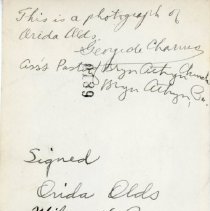 This is a photograph of
Orida Olds
George de Charms
Ass's Pastor Bryn Athyn Church
Bryn Athyn, Pa.
6819
Signed
Orida Olds